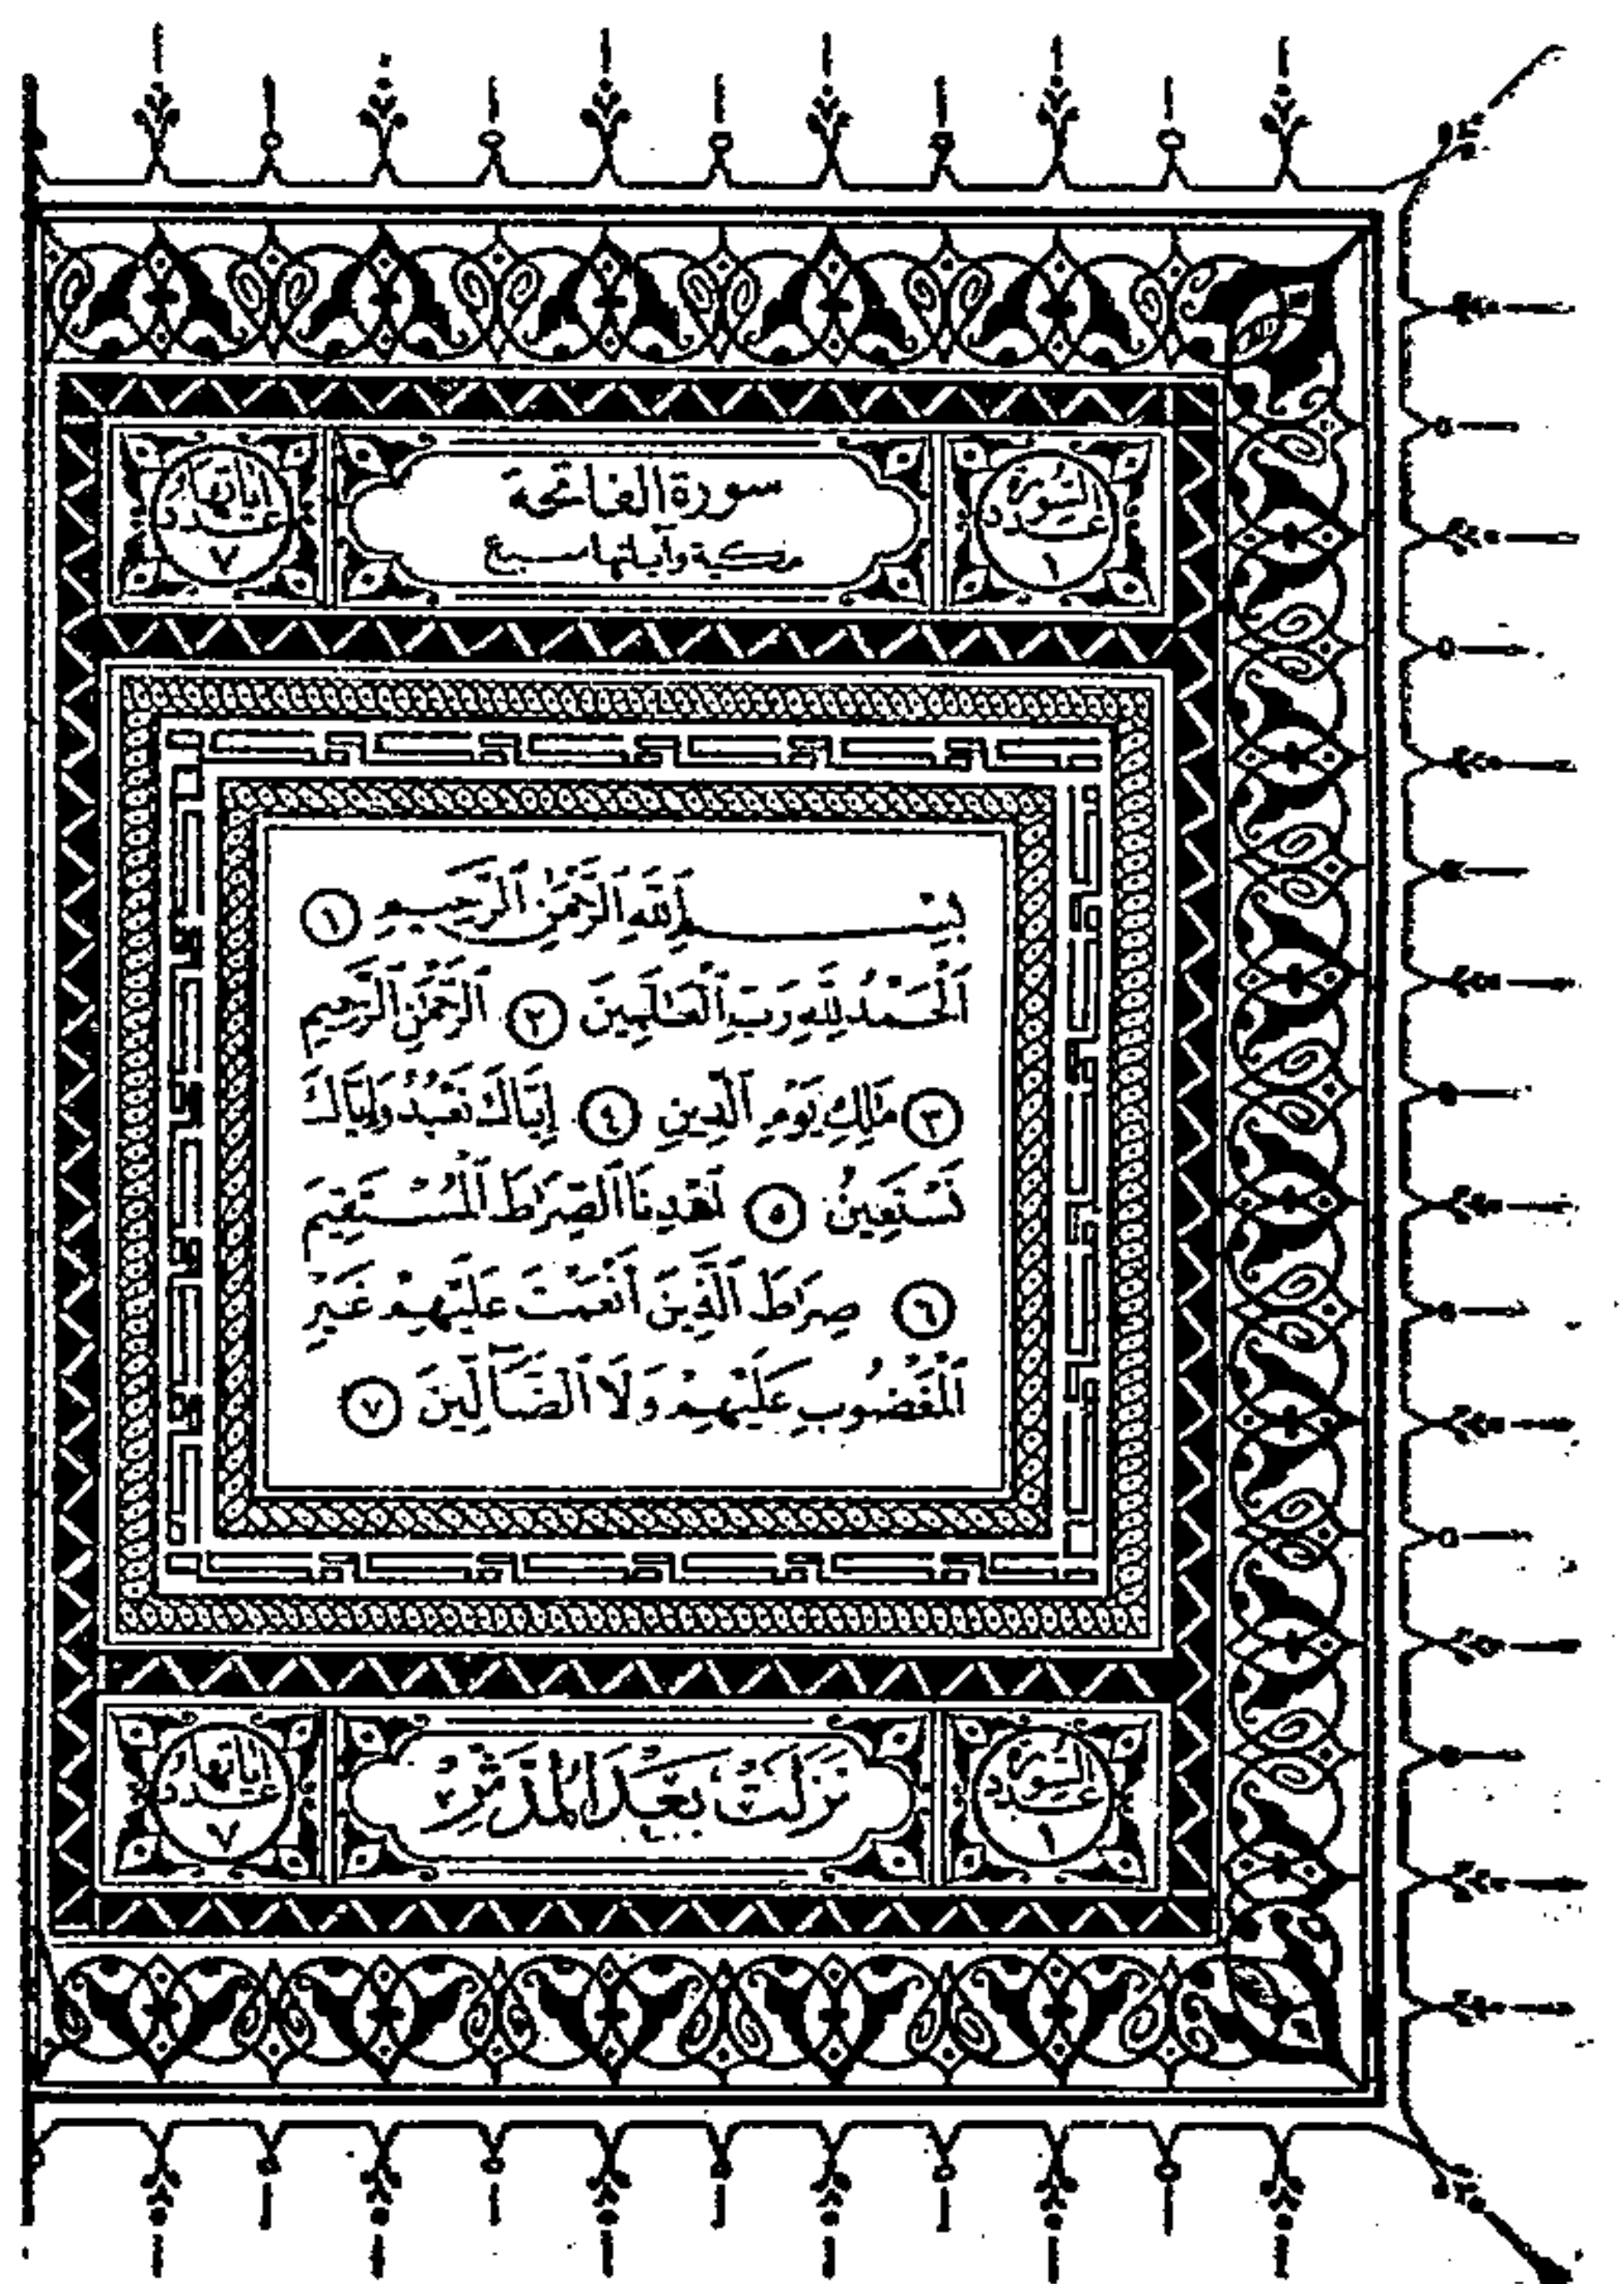 السورة
عدد
١
سورة الفاتحة
مكية وآياتها سبع
آياتها
عدد
٧
بِسْمِ اللَّهِ الرَّحْمَٰنِ الرَّحِيمِ ١
اَلْحَمْدُ لِلَّهِ رَبِّ الْعَالَمِينَ ٢ اَلرَّحْمَٰنِ الرَّحِيمِ
٣ مَالِكِ يَوْمِ الدِّينِ ٤ إِيَّاكَ نَعْبُدُ وَإِيَّاكَ
نَسْتَعِينُ ٥ اهْدِنَا الصِّرَاطَ الْمُسْتَقِيمَ
٦ صِرَاطَ الَّذِينَ أَنْعَمْتَ عَلَيْهِمْ غَيْرِ
الْمَغْضُوبِ عَلَيْهِمْ وَلَا الضَّالِّينَ ٧
السورة
عدد
١
نَزَلَتْ بَعْدَ الْمُدَّثِّرِ
آياتها
عدد
٧